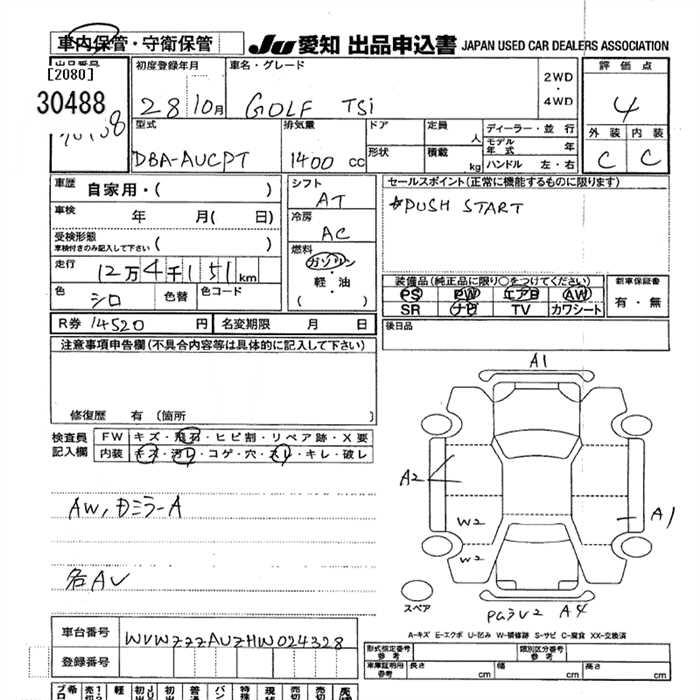 車内保管・守衛保管
JU 愛知 出品申込書 JAPAN USED CAR DEALERS ASSOCIATION
[2080]
30488
初度登録年月
28 10月
車名・グレード
GOLF TSI
2WD
・
4WD
評価点
4
外装 内装
C C
型式
DBA-AUCPT
排気量
1400 cc
ドア
形状
定員
人
積載
kg
ディーラー・並行
モデル年式 年
ハンドル 左・右
車歴 自家用・( )
車検 年 月( 日)
受検形態
車検付きのみ記入して下さい ( )
走行 12万4千151km
色 シロ
色替
色コード
シフト
AT
冷房
AC
燃料
ガソリン
・
軽・油
( )
セールスポイント(正常に機能するものに限ります)
*PUSH START
装備品(純正品に限り○をつけてください)
PS PW エアB AW
SR ナビ TV カワシート
新車保証書
有・無
R券 14520 円
名変期限 月 日
後日品
注意事項申告欄(不具合内容等は具体的に記入して下さい)
修復歴 有 (箇所 )
検査員
記入欄
FW キズ・飛石・ヒビ割・リペア跡・X要
内装 キズ・汚レ・コゲ・穴・スレ・キレ・破レ
AW,
ミラーA
各AV
A1
A2
W2
W2
A1
PGラV2 A4
スペア
A-キズ E-エクボ U-凹み W-補修跡 S-サビ C-腐食 XX-交換済
車台番号
WVWZZZAUZHW024328
登録番号
形式指定番号
参考
類別区分番号
参考
車庫証明用
参考
長さ cm
幅 cm
高さ cm